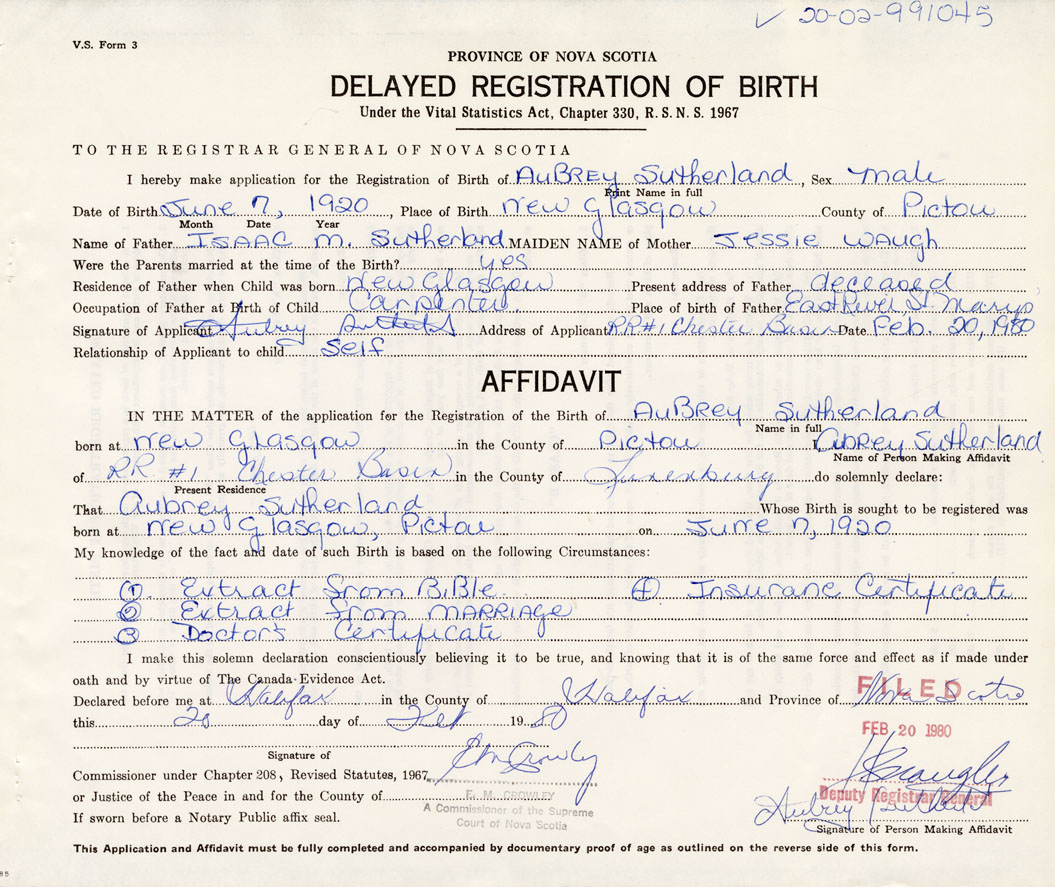 ✓ 20-02-991045
V.S. Form 3
PROVINCE OF NOVA SCOTIA
DELAYED REGISTRATION OF BIRTH
Under the Vital Statistics Act, Chapter 330, R. S. N. S. 1967
TO THE REGISTRAR GENERAL OF NOVA SCOTIA
I hereby make application for the Registration of Birth of AuBREy Sutherland, Sex male
Print Name in full
Date of Birth June 7, 1920, Place of Birth New Glasgow County of Pictou
Month Date Year
Name of Father ISAAC M. Sutherland MAIDEN NAME of Mother Jessie Waugh
Were the Parents married at the time of the Birth? yes
Residence of Father when Child was born New Glasgow Present address of Father deceased
Occupation of Father at Birth of Child Carpenter Place of birth of Father East River St Marys
Signature of Applicant Aubrey Sutherland Address of Applicant RR#1 Chester Basin Date Feb. 20, 1980
Relationship of Applicant to child Self
AFFIDAVIT
IN THE MATTER of the application for the Registration of the Birth of AuBREy Sutherland
Name in full
born at New Glasgow in the County of Pictou I, Aubrey Sutherland
Name of Person Making Affidavit
of RR #1 Chester Basin in the County of Lunenburg do solemnly declare:
Present Residence
That Aubrey Sutherland Whose Birth is sought to be registered was
born at New Glasgow, Pictou on June 7, 1920
My knowledge of the fact and date of such Birth is based on the following Circumstances:
① Extract from BiBle ④ Insurance Certificate
② Extract from MARRIAGE
③ Doctor's Certificate
I make this solemn declaration conscientiously believing it to be true, and knowing that it is of the same force and effect as if made under
oath and by virtue of The Canada Evidence Act.
Declared before me at Halifax in the County of Halifax and Province of Nova Scotia
FILED
this 20 day of Feb 1980
FEB 20 1980
Signature of E M Crowley
Commissioner under Chapter 208, Revised Statutes, 1967
or Justice of the Peace in and for the County of E. M. CROWLEY
Deputy Registrar General
A Commissioner of the Supreme
Court of Nova Scotia
If sworn before a Notary Public affix seal.
Aubrey Sutherland
Signature of Person Making Affidavit
This Application and Affidavit must be fully completed and accompanied by documentary proof of age as outlined on the reverse side of this form.
85